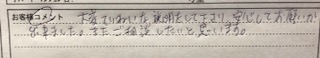 お客様コメント 大変ていねいな説明をして下さり、安心してお願いが
出来ました。またご相談したいと思います。